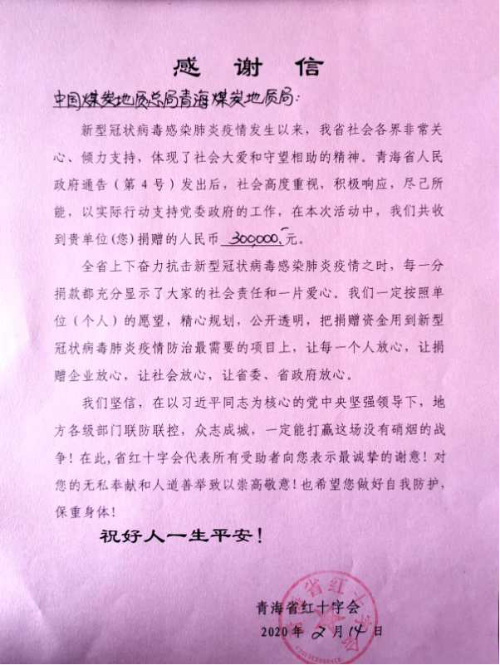 感谢信
中国煤炭地质总局青海煤炭地质局:
新型冠状病毒感染肺炎疫情发生以来，我省社会各界非常关
心、倾力支持，体现了社会大爱和守望相助的精神。青海省人民
政府通告（第4号）发出后，社会高度重视，积极响应，尽己所
能，以实际行动支持党委政府的工作，在本次活动中，我们共收
到贵单位(您)捐赠的人民币 300,000. 元。
全省上下奋力抗击新型冠状病毒感染肺炎疫情之时，每一分
捐款都充分显示了大家的社会责任和一片爱心。我们一定按照单
位（个人）的愿望，精心规划，公开透明，把捐赠资金用到新型
冠状病毒肺炎疫情防治最需要的项目上，让每一个人放心，让捐
赠企业放心。让社会放心，让省委、省政府放心。
我们坚信，在以习近平同志为核心的党中央坚强领导下，地
方各级部门联防联控，众志成城，一定能打赢这场没有硝烟的战
争！在此,省红十字会代表所有受助者向您表示最诚挚的谢意！对
您的无私奉献和人道善举致以崇高敬意！也希望您做好自我防护，
保重身体！
祝好人一生平安！
青海省红十字会
2020年2月14日
省红十字会